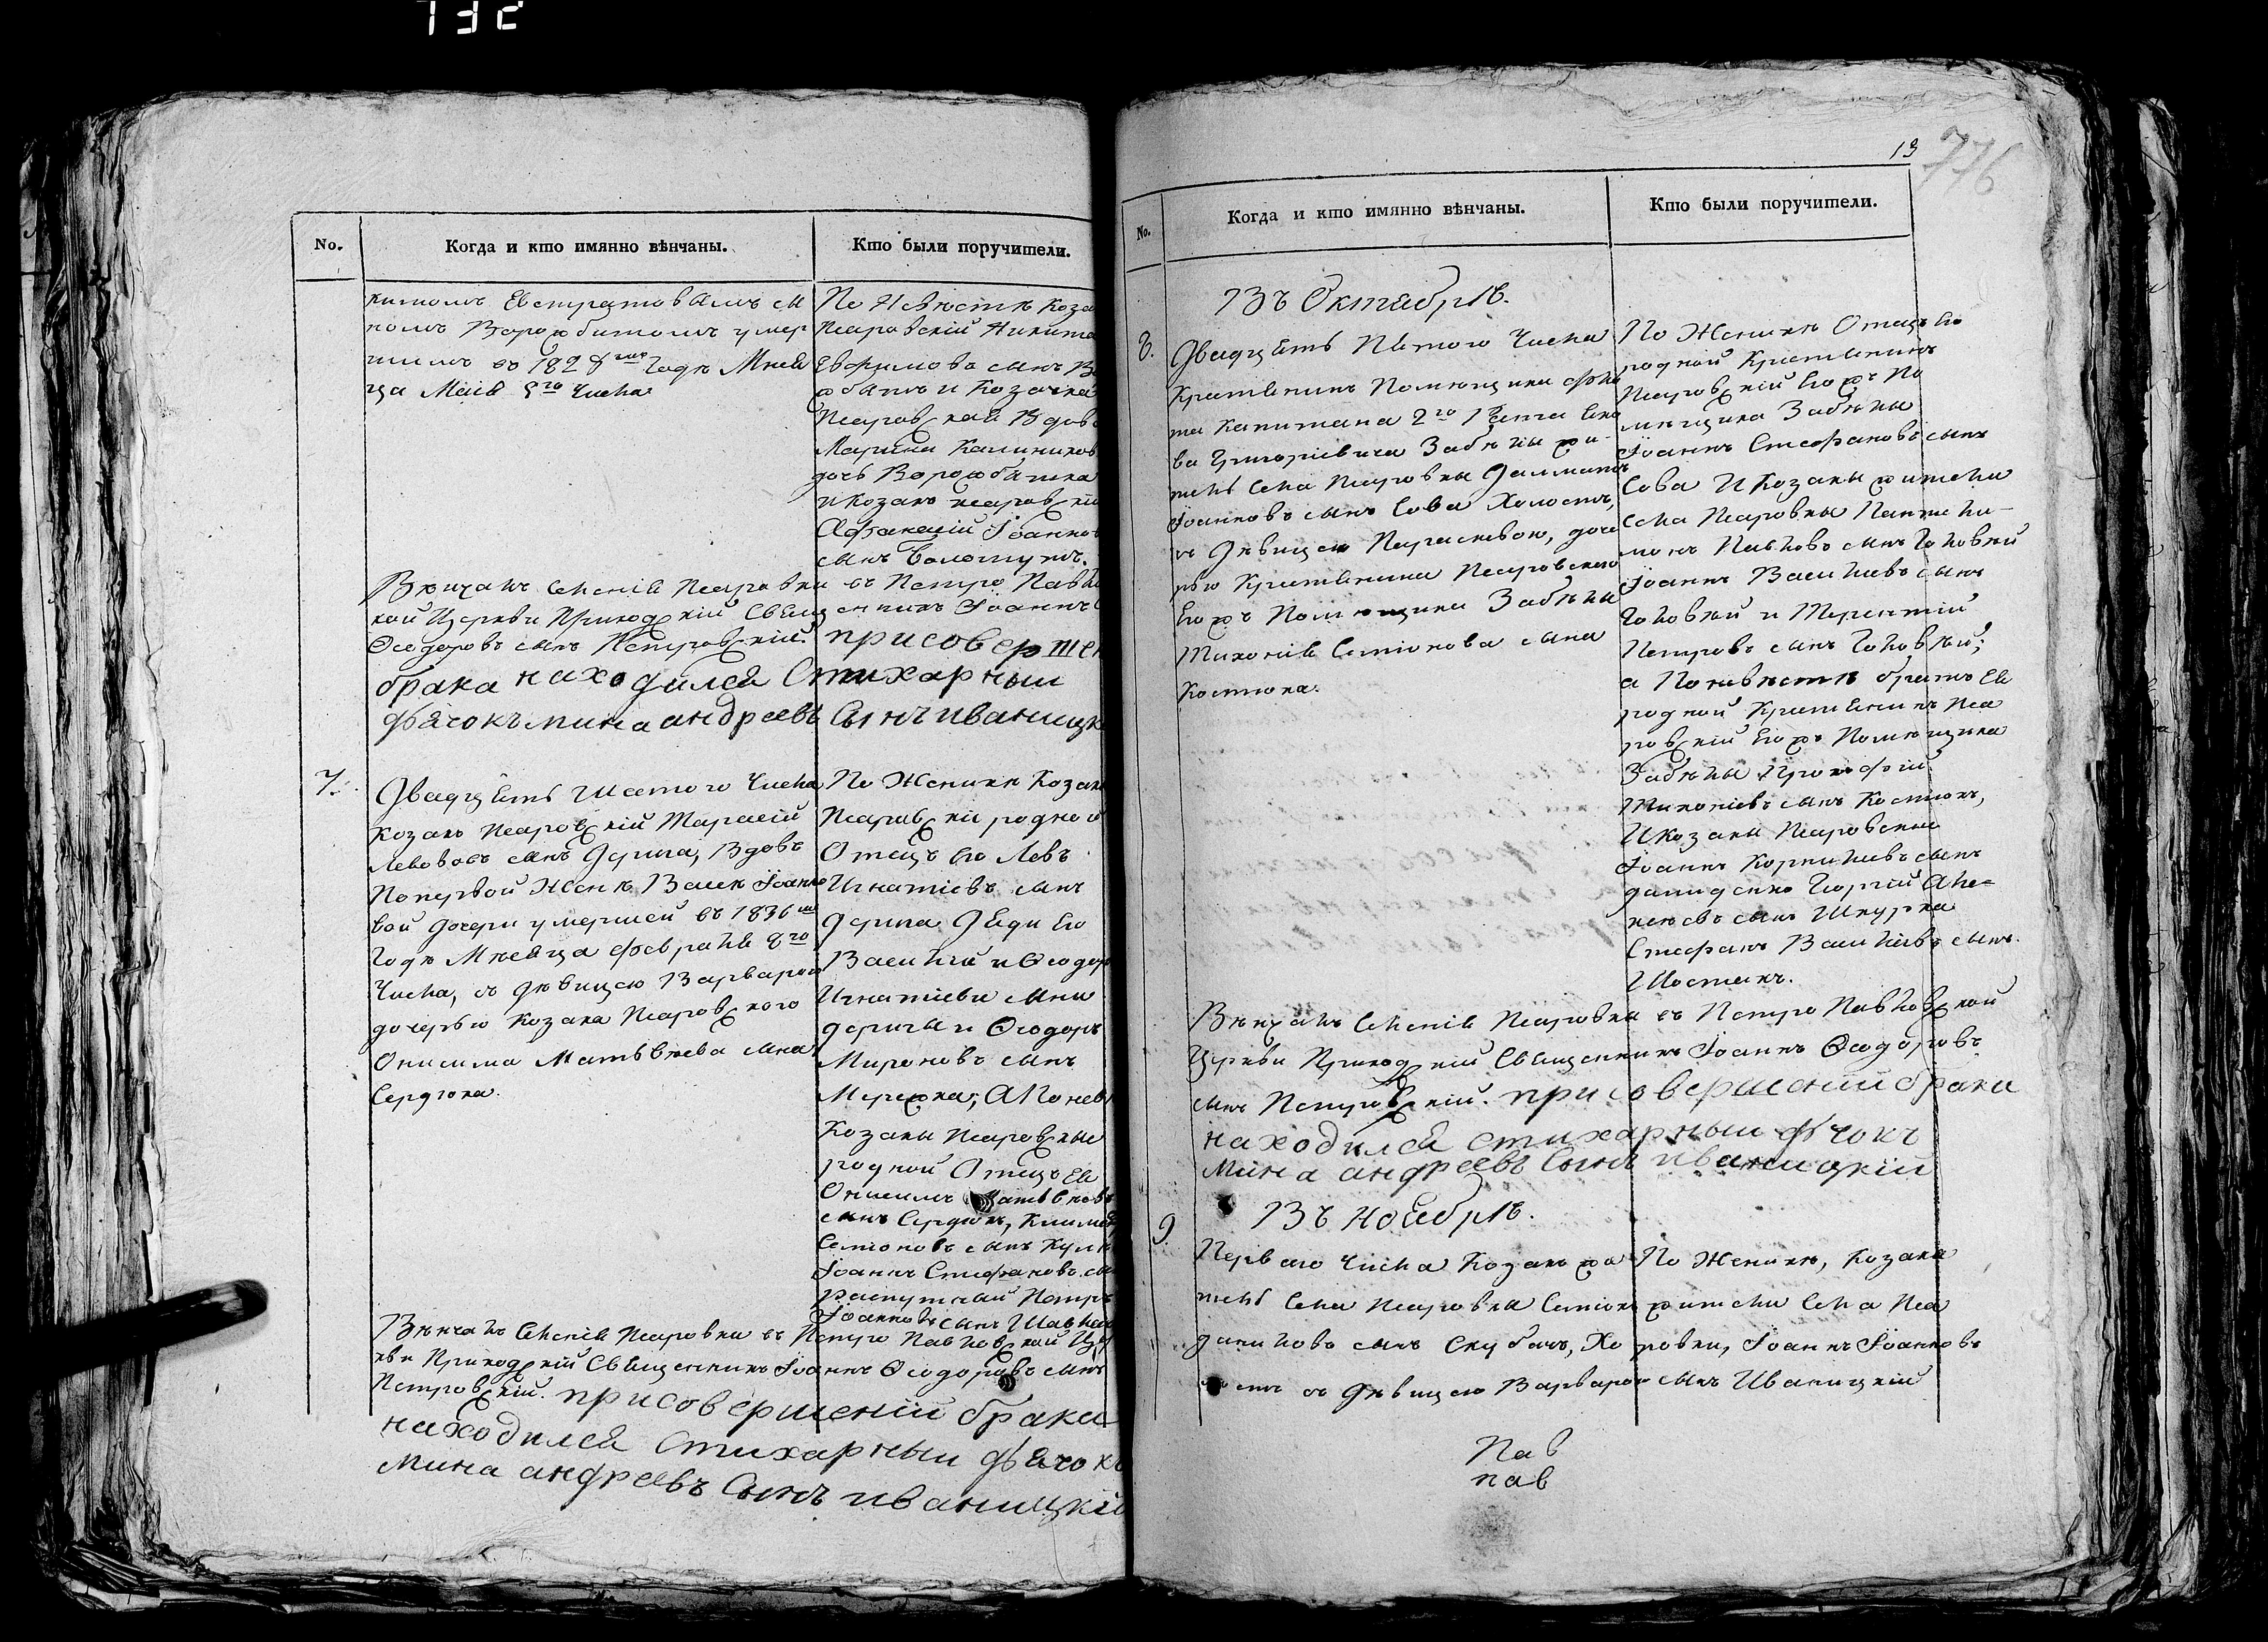 732
No.
Когда и кто имянно вѣнчаны.
Кто были поручители.
китомъ Евстратовымъ сы
номъ Воробитомъ умер
шимъ въ 182 годѣ Мѣся
ца Маія 5го Числа
По Невѣстѣ Коза
Псаровскій Никита
Евфимовъ сынъ
и Козачка
Псаровская Вдова
Марина Калиников
дочь
и Козакъ псаровскій
Афанасій Іоаннов
сынъ Болотунъ.
Вѣнчалъ Селенія Псаровки въ Петро Павло
кой Церкви Приходскій Священникъ Іоаннъ
Ѳеодоровъ сынъ Петровскій. при совершен
брака находился Стихарный
дьячокъ мина андреевъ Сынъ иваницк
7.
Двадцять Шестого Числа
Козакъ Псаровскій Тарасій
Львовъ сынъ Дерипа, Вдовъ
По первой Женѣ Васса Іоанно
вой дочери умершей въ 1836
Годѣ Мѣсяца февраля 8го
Числа, съ дѣвицею Варварою
дочерью Козака Псаровского
Онисима Матьвѣева сына
Сердюка.
По Женихѣ Козаки
Псаровскіи родной
Отецъ Его Левъ
Игнатіевъ сынъ
Дерипа Дяди Его
Василій и Ѳеодоръ
Игнатіеви сыны
Дерипы и Ѳеодоръ
Мироновъ сынъ
Мережка; А По невѣ
Козаки Псаровскіе
родной Отецъ Ея
Онисимъ Матьвѣевъ
сынъ Сердюкъ,
Семіоновъ сынъ
Іоаннъ Стефановъ сы
распутный Петръ
Іоанновъ сынъ
Вѣнчалъ Селенія Псаровки въ Петро Павловской Цер
кви Приходскій Священникъ Іоаннъ Ѳеодоровъ сынъ
Петровскій. при совершеніи брака
находился Стихарный дьячокъ
мина андреевъ Сынъ иваницкій
13
776
No.
Когда и кто имянно вѣнчаны.
Кто были поручители.
Въ Октябрѣ.
8.
Двадцять Пятого Числа
Крестянинъ Помѣщика фло
та Капитана 2го Ранга
ва Григоріевича Забѣлы жи-
тель Села Псаровки Далматъ
Іоанновъ сынъ Сова Холостъ,
съ Дѣвицею Параскевою, доче
рью Крестянина Псаровского
Его жъ Помѣщика Забѣлы
Тихонія Семіонова сына
Костюка.
По Женихѣ Отецъ Его
родной Крестянинъ
Псаровскій Его жъ По
мѣщика Забѣлы
Іоаннъ Стефановъ сынъ
Сова И Козаки жители
Села Псаровки Пантели-
монъ Павловъ сынъ Головъй
Іоаннъ Васильевъ сынъ
Головъй и Терентій
Петровъ сынъ Головъй;
а По невѣстѣ братъ Ея
родной Крестянинъ Пса
ровскій Его жъ Помѣщика
Забѣлы Прокофій
Тихоніевъ сынъ Костюкъ,
И Козаки Псаровскіе
Іоаннъ Корниліевъ сынъ
Даниденко Георгій Але-
ксѣевъ сынъ Шкурка
Стефанъ Василіевъ сынъ
Шостакъ.
Вѣнчалъ Селенія Псаровки въ Петро Павловской
Церкви Приходскій Священникъ Іоаннъ Ѳеодоровъ
сынъ Петровскій. при совершеніи брака
находился стихарный дьчокъ
мина андреевъ Сынъ иваницкій
Въ Ноябрѣ.
9.
Перваго Числа Козакъ жи
тель Села Псаровки Семіонъ
Даниловъ сынъ Скубачъ, Хо
лостъ съ Дѣвицею Варварою
По Женихѣ, Козаки
жители Села Пса
ровки, Іоаннъ Іоанновъ
сынъ Иваницкій
Пав
пав